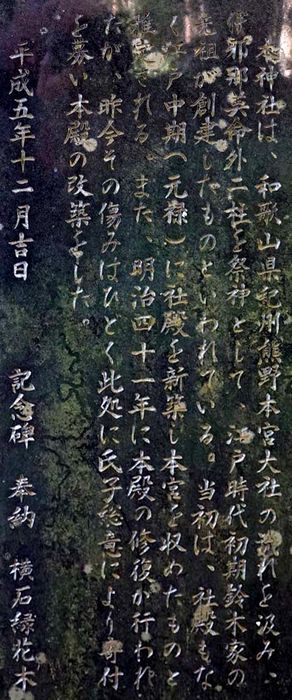 本神社は、和歌山県紀州熊野本宮大社の流れを汲み、
伊邪那美命外二柱を祭神として、江戸時代初期鈴木家の
先祖が創建したものといわれている。当初は、社殿もな
く江戸中期(元禄)に社殿を新築し本宮を収めたものと
推定される。また、明治四十一年に本殿の修復が行われ
たが、昨今その傷みはひどく此処に氏子総意により寄付
を募い本殿の改築をした。
平成五年十二月吉日 記念碑 奉納 横石緑花木